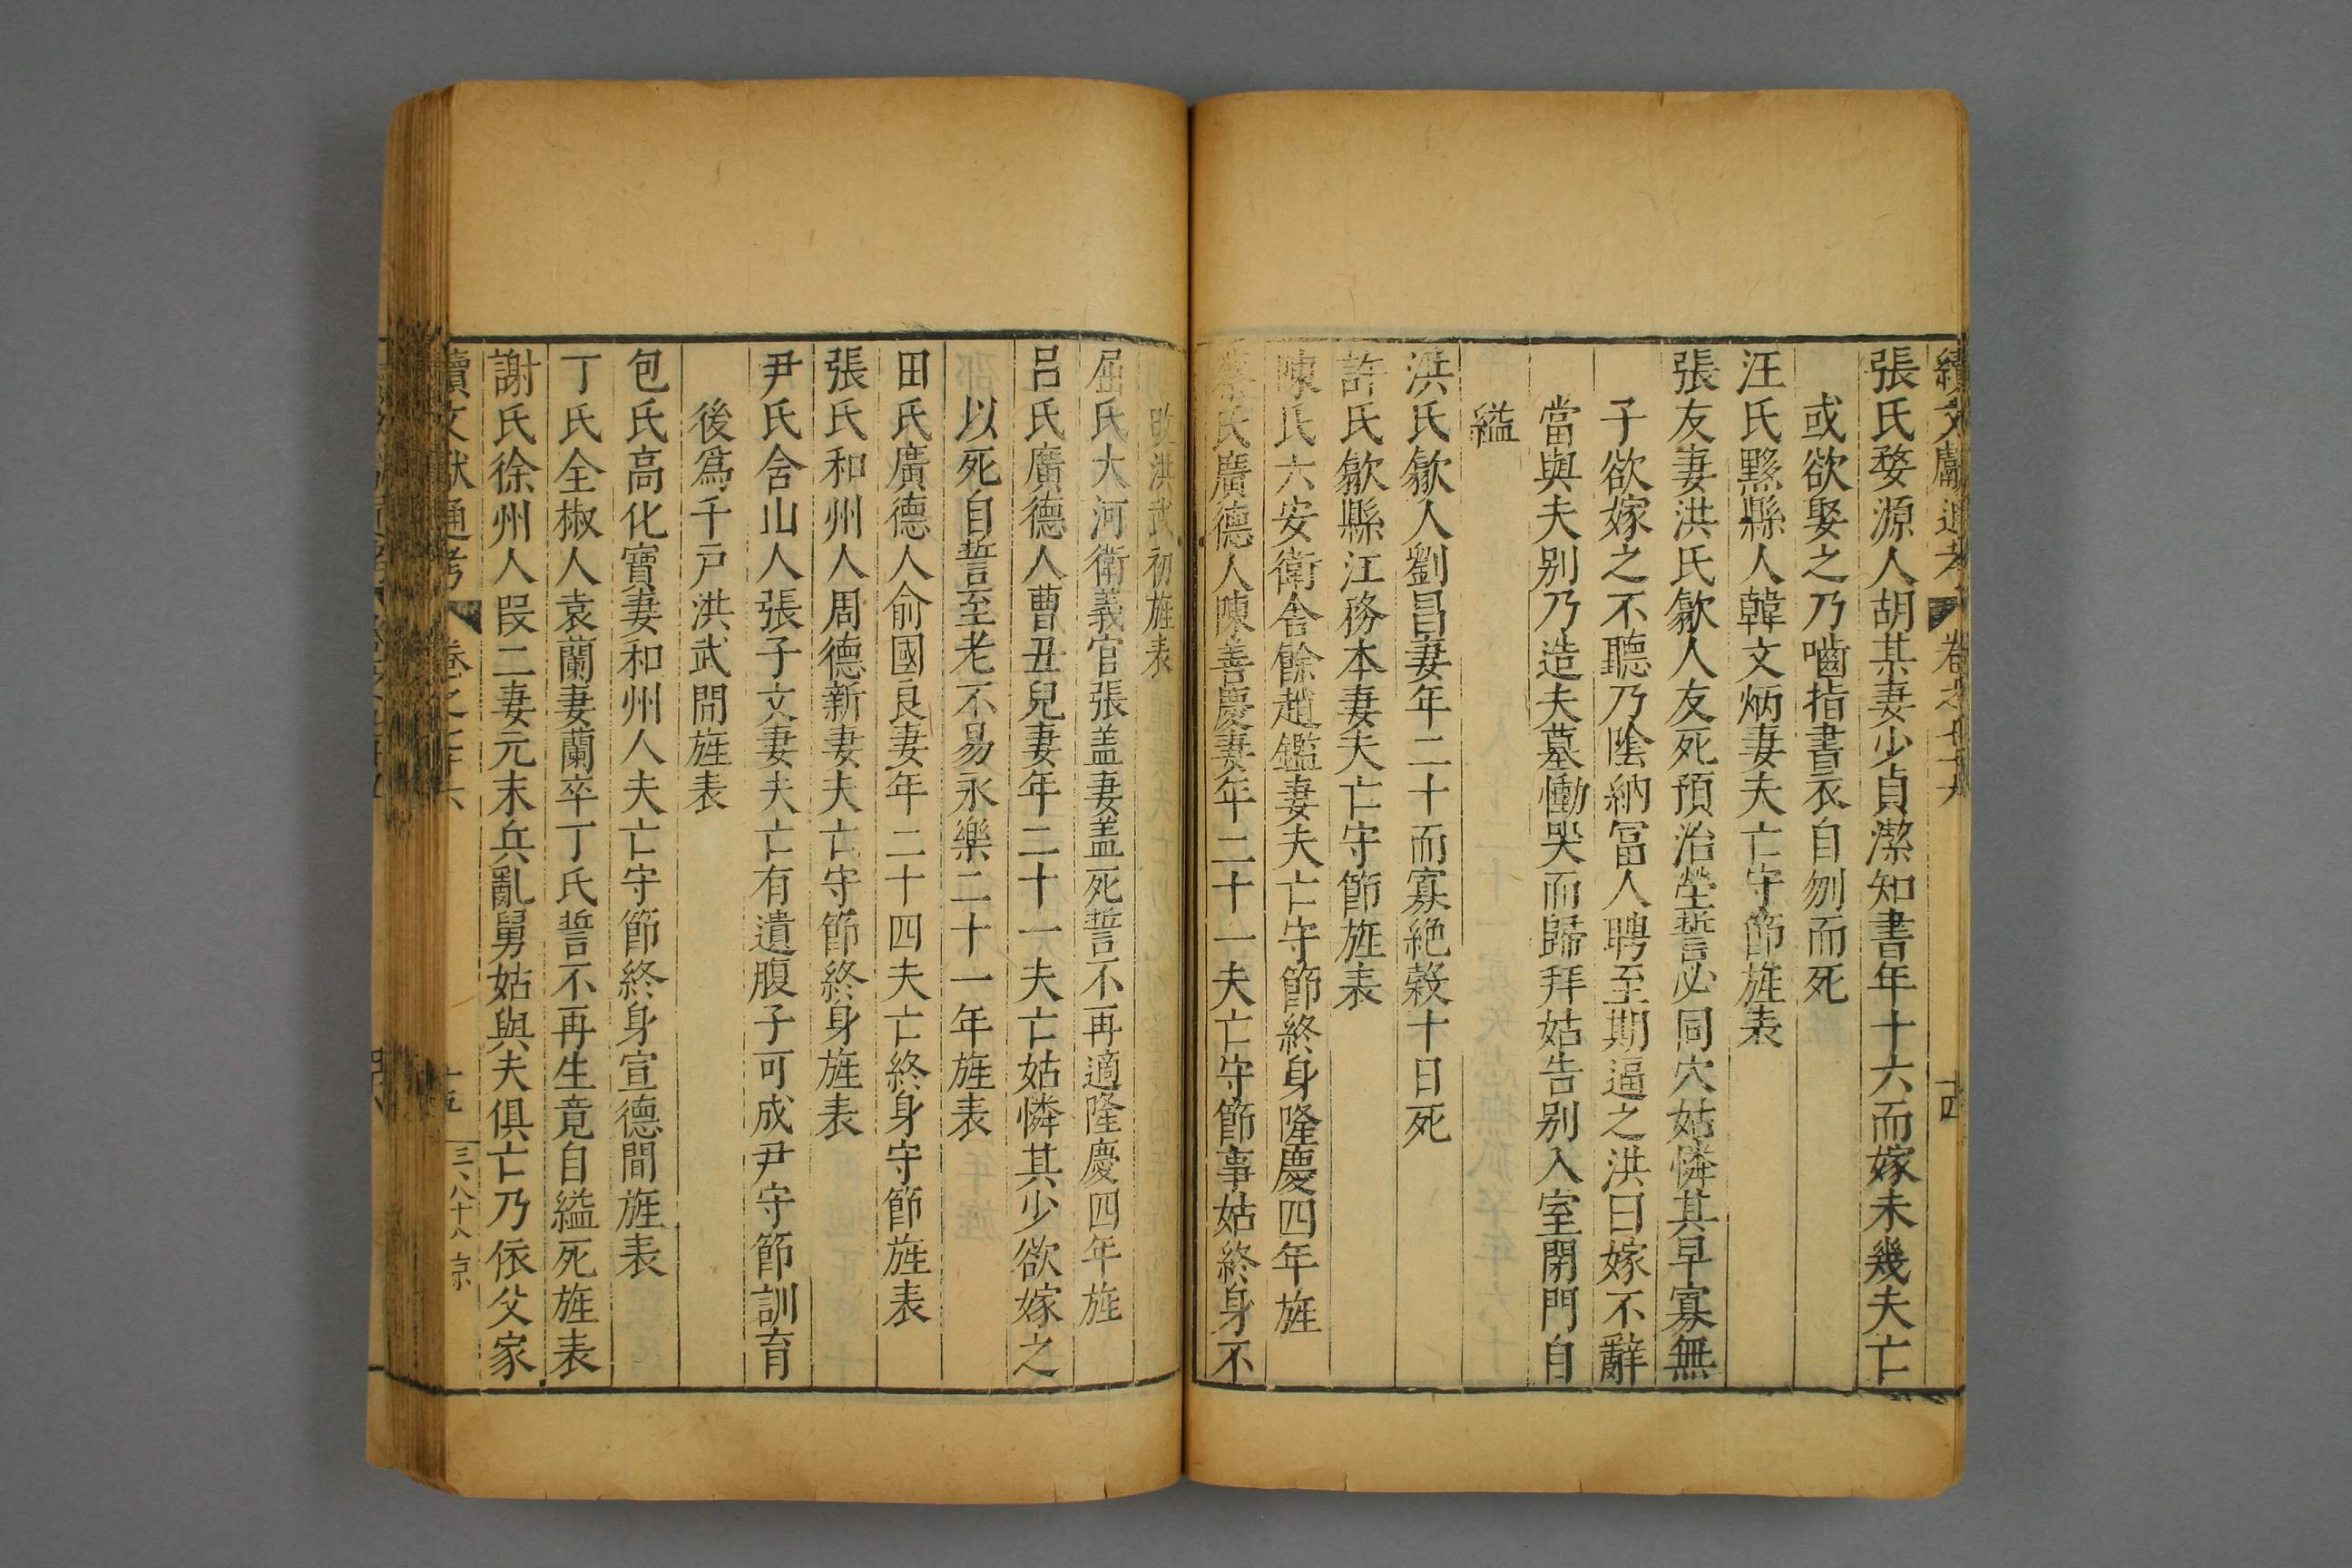 續文獻通考 卷之七十六 十四
張氏婺源人胡某妻少貞潔知書年十六而嫁未幾夫亡
或欲娶之乃嚙指書衣自刎而死
汪氏黟縣人韓文炳妻夫亡守節旌表
張友妻洪氏歙人友死預治塋誓必同穴姑憐其早寡無
子欲嫁之不聽乃陰納冨人聘至期逼之洪曰嫁不辭
當與夫别乃造夫墓慟哭而歸拜姑告别入室閉門自
縊
洪氏歙人劉昌妻年二十而寡絶榖十日死
許氏歙縣江務本妻夫亡守節旌表
陳氏六安衛舍餘趙鑑妻夫亡守節終身隆慶四年旌
蔡氏廣德人陳善慶妻年二十一夫亡守節事姑終身不
改洪武初旌表
屈氏大河衛義官張盖妻盖死誓不再適隆慶四年旌
呂氏廣德人曹丑兒妻年二十一夫亡姑憐其少欲嫁之
以死自誓至老不易永樂二十一年旌表
田氏廣德人俞國良妻年二十四夫亡終身守節旌表
張氏和州人周德新妻夫亡守節終身旌表
尹氏含山人張子文妻夫亡有遺腹子可成尹守節訓育
後爲千戶洪武間旌表
包氏高化寶妻和州人夫亡守節終身宣德間旌表
丁氏全椒人袁蘭妻蘭卒丁氏誓不再生竟自縊死旌表
謝氏徐州人段二妻元末兵亂舅姑與夫俱亡乃依父家
續文獻通考 卷之七十六 十五